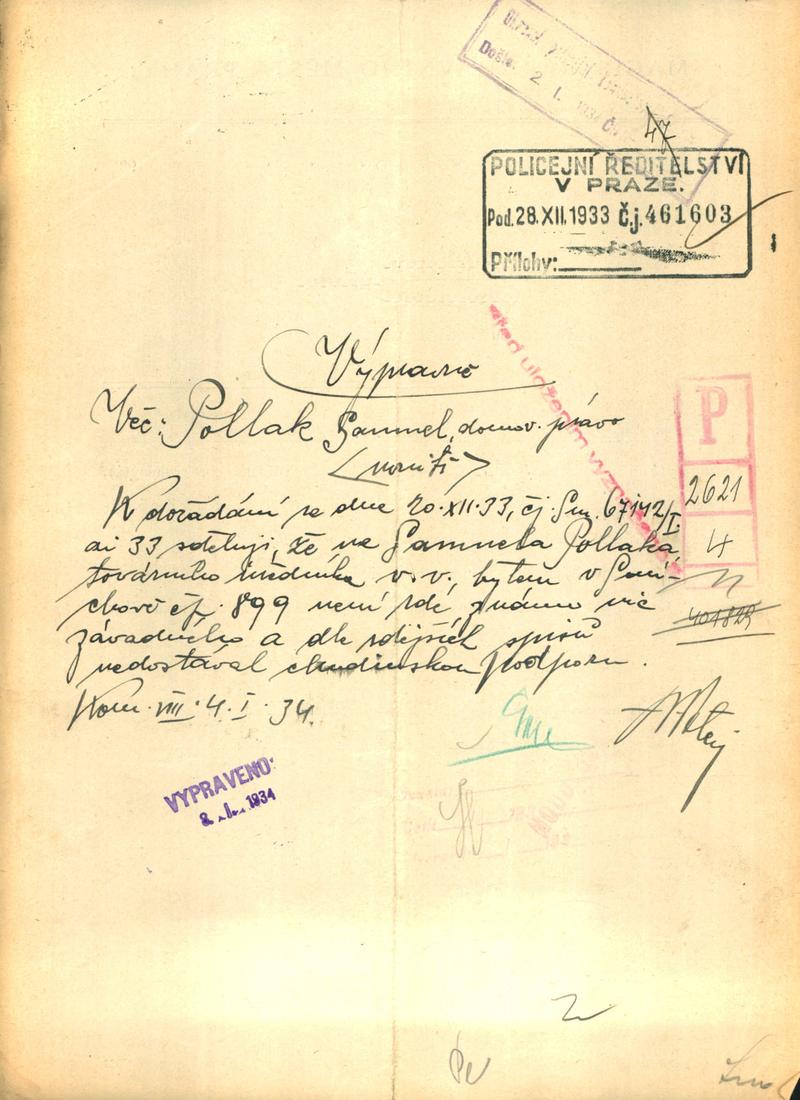 Došlo: 2. I. 1934
47
POLICEJNÍ ŘEDITELSTVÍ
V PRAZE.
Pod. 28.XII.1933 Č.j. 461603
Přílohy:
Výpravně
Věc: Pollak Samuel, domov. právo
K dožádání ze dne 20.XII.33, čj. Sm. 67142/I.
ai 33 sděluji, že na Samuela Pollaka,
továrního úředníka v.v., bytem v Smí-
chově čp. 899 není zde známo nic
závadného a dle zdejších spisů
nedostával chudinskou podporu.
Kom. VIII. 4. I. 34.
P
2621
4
401829
před uložením
VYPRAVENO:
8. I. 1934